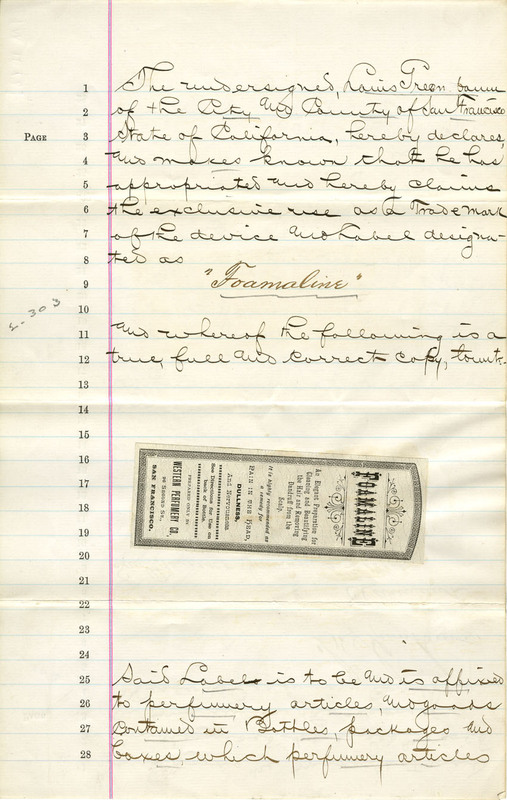 1 The undersigned, Louis Green baum
2 of the City and County of San Francisco
PAGE 3 State of California, hereby declares,
4 and makes known that he has
5 appropriated and hereby claims
6 the exclusive use as a Trade mark
7 of the device and Label designa-
8 ted as
9 "Foamaline"
10
11 and whereof the following is a
12 true, full and correct copy, towit-
13
14
15
16
17
18
19
20
21
22
23
24
L-303
FOAMALINE
An Elegant Preparation for
Cleansing and Beautifying
the Hair and Removing
Dandruff from the
Scalp.
It is highly recommended as
a remedy for
PAIN IN THE HEAD,
DULLNESS,
And Nervousness.
See Directions for Use on
back of Bottle.
PREPARED ONLY BY
WESTERN PERFUMERY CO.
SECOND ST.,
SAN FRANCISCO.
25 Said Label is to be and is affixed
26 to perfumery articles, and goods
27 contained in Bottles, packages and
28 boxes, which perfumery articles